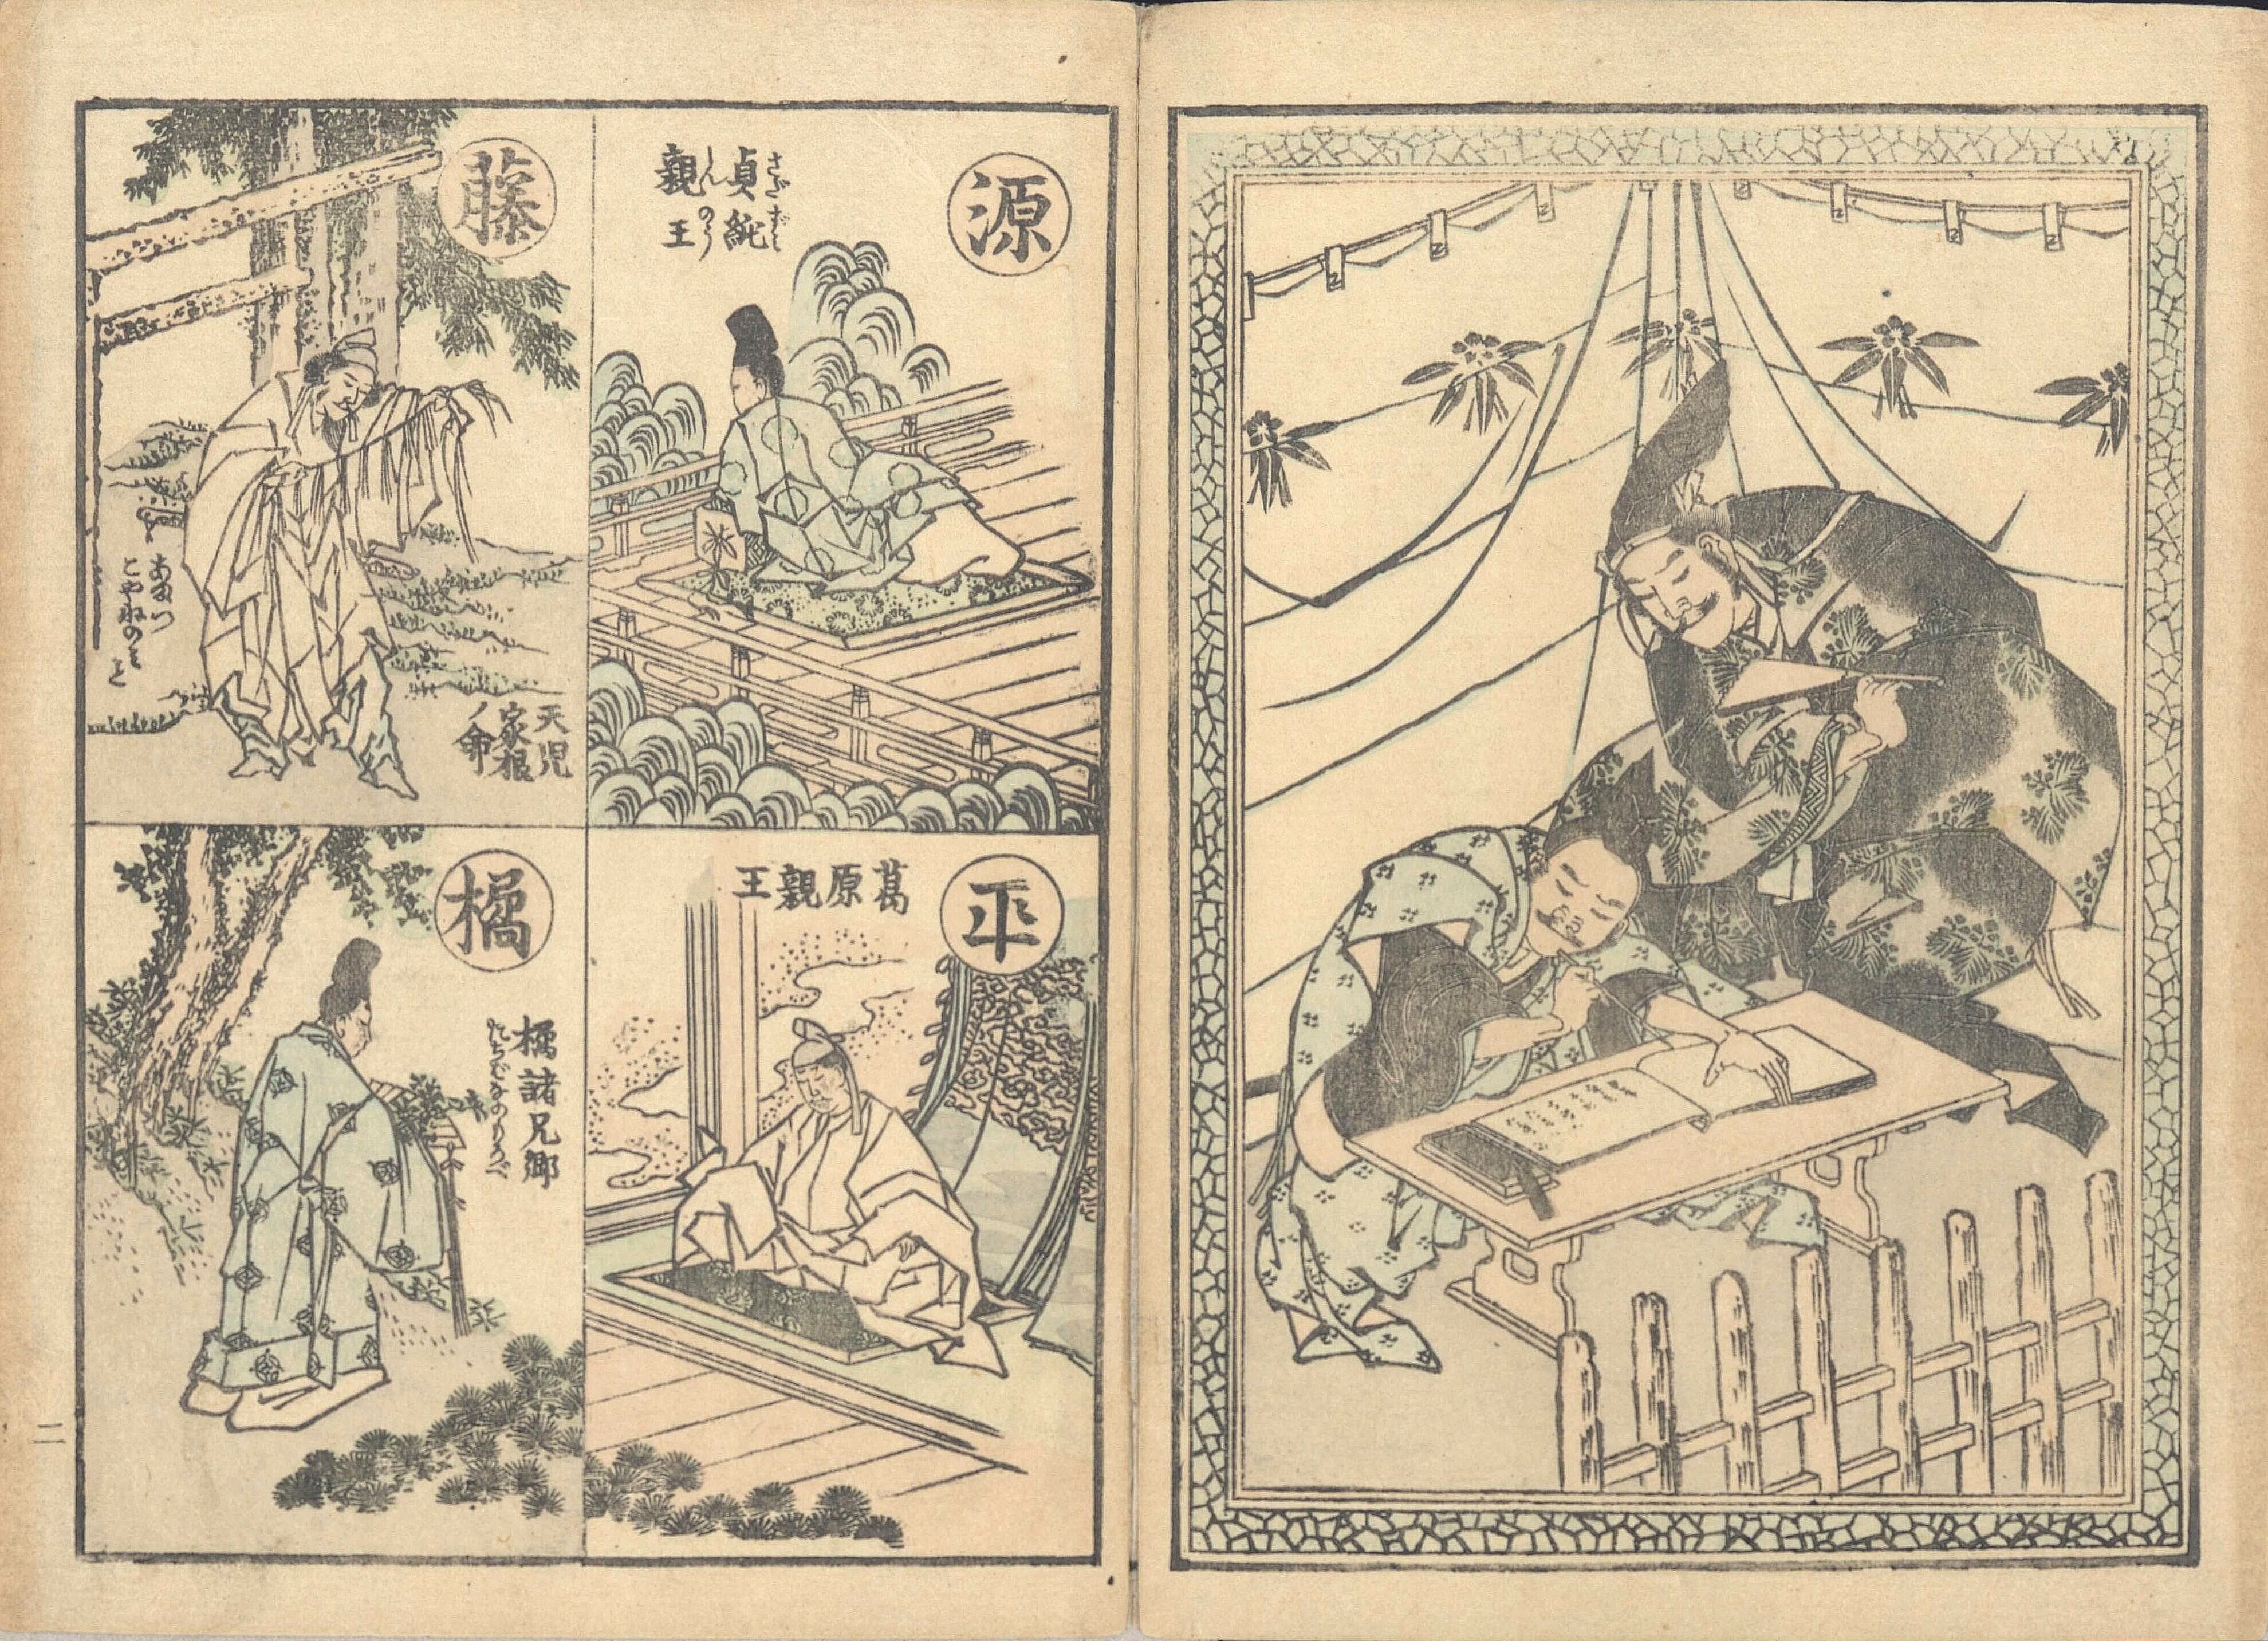 源
貞純
さだずみ
親王
しんのう
藤
天児
家根
ノ命
あまつ
こやねのみこと
平
葛原親王
橘
橘諸兄卿
たちばなのもろへ
二